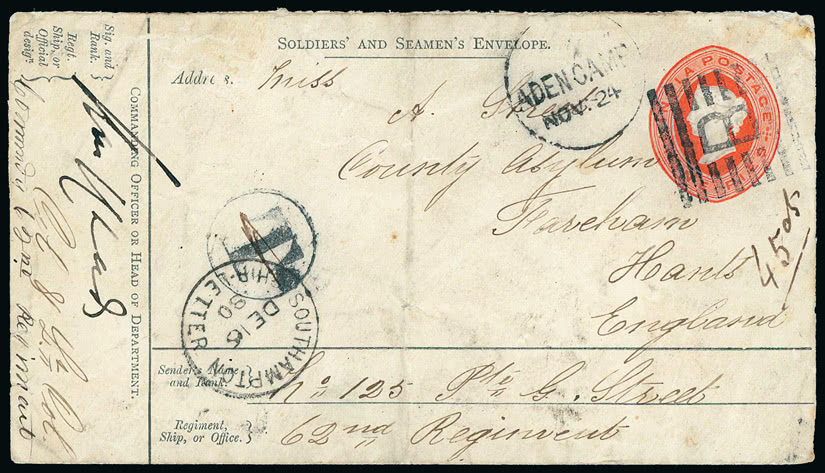 SOLDIERS' AND SEAMEN'S ENVELOPE.
Address. Miss
A. Street
County Asylum
Fareham
Hants
England
ADEN CAMP
NOV. 24
INDIA POSTAGE
B
1
SOUTHAMPTON
SHIP-LETTER
DE 16
90
Sender's Name and Rank. } No 125 Pte G. Street
Regiment, Ship, or Office. } 62nd Regiment
Sig. and Rank.
Regt. Ship, or Official desigⁿ.
COMMANDING OFFICER OR HEAD OF DEPARTMENT.
Lt Col
Regiment